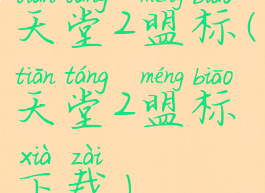 tiān táng méng biāo
天堂2盟标(
tiān táng méng biāo
天堂2盟标
xià zài
下载)